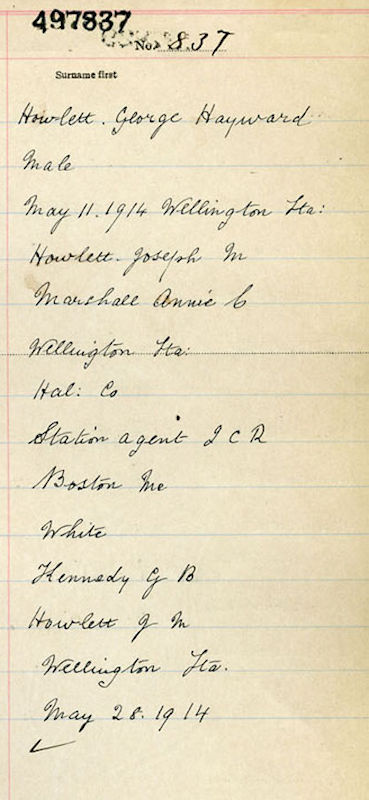 497837
No. 837
Surname first
Howlett. George Hayward
Male
May 11. 1914 Wellington Sta:
Howlett. Joseph M
Marshall Annie C
Wellington Sta:
Hal: Co
Station agent I C R
Boston Me
White
Kennedy G B
Howlett J M
Wellington Sta.
May 28. 1914